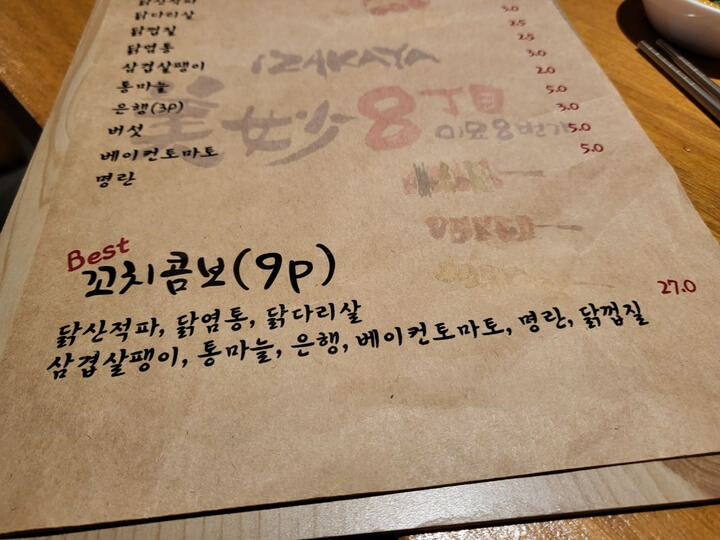 닭산적파
닭다리살 3.0
닭껍질 2.5
닭염통 2.5
삼겹살팽이 3.0
통마늘 2.0
은행(3P) 5.0
버섯 3.0
베이컨토마토 5.0
명란 5.0
IZAKAYA
美妙8丁目
미묘8번가
Best
꼬치콤보(9p)
27.0
닭산적파, 닭염통, 닭다리살
삼겹살팽이, 통마늘, 은행, 베이컨토마토, 명란, 닭껍질